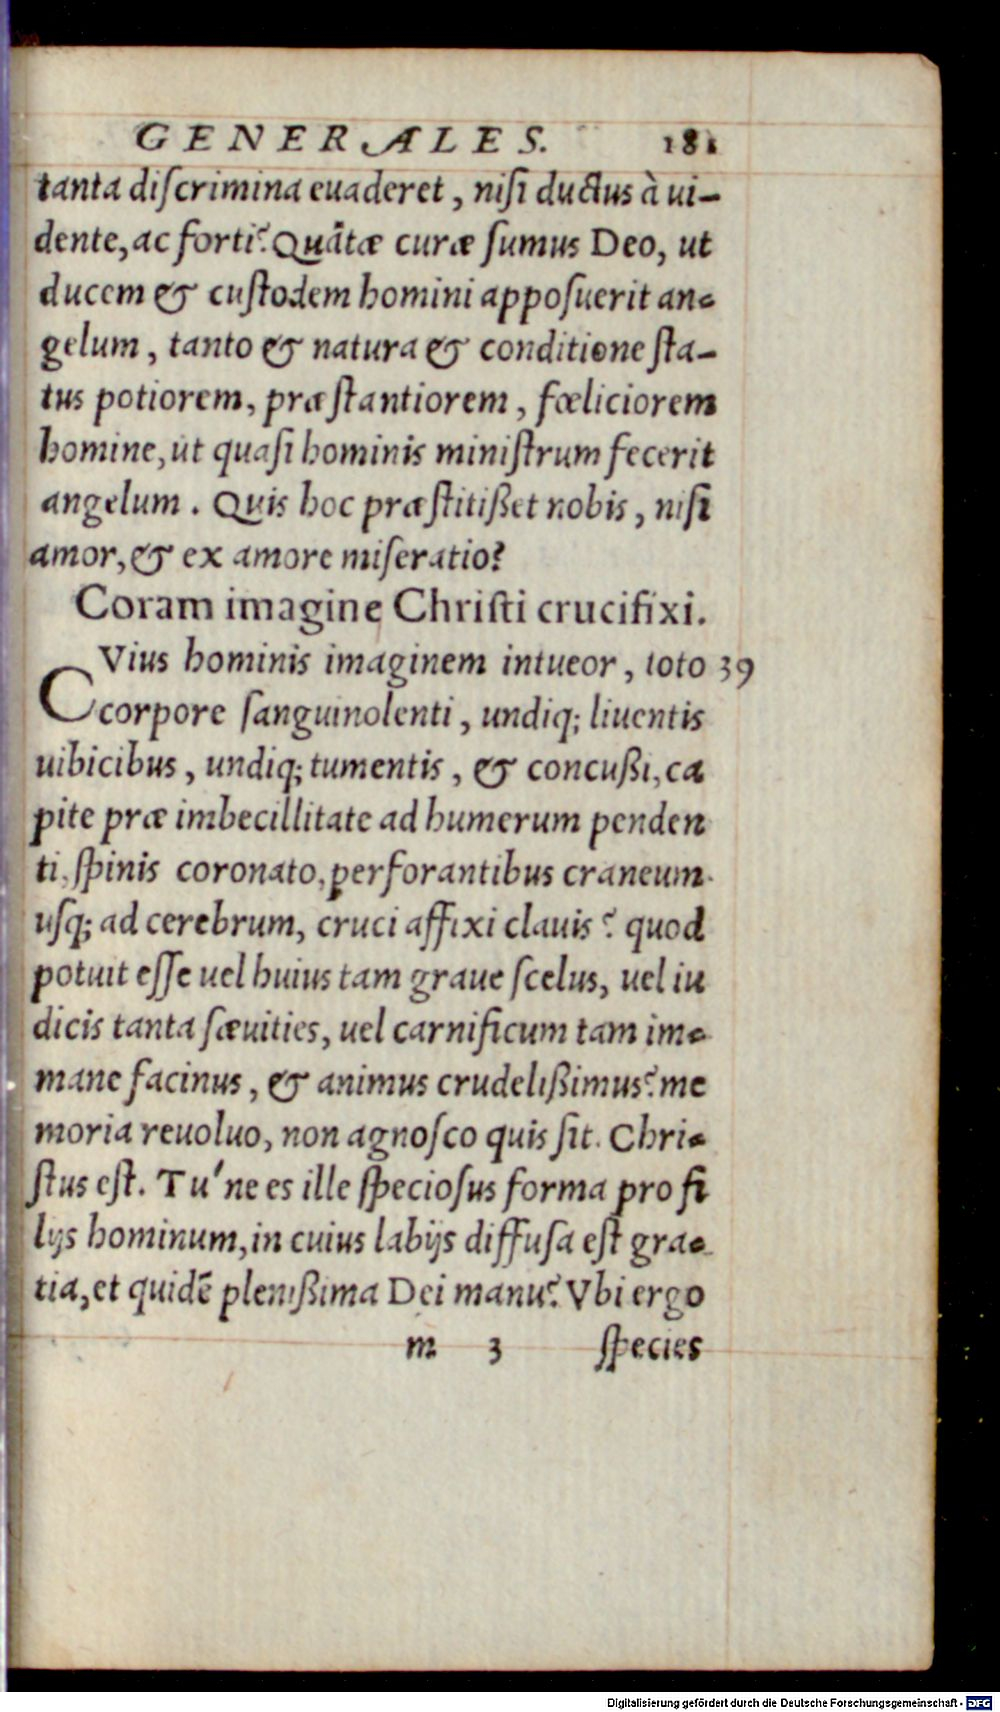 GENERALES. 181
tanta diſcrimina euaderet, niſi ductus à ui-
dente, ac forti? Quãtæ curæ ſumus Deo, ut
ducem & cuſtodem homini appoſuerit an-
gelum, tanto & natura & conditione ſta-
tus potiorem, præſtantiorem, fœliciorem
homine, ut quaſi hominis miniſtrum fecerit
angelum. Quis hoc præſtitißet nobis, niſi
amor, & ex amore miſeratio?
Coram imagine Chriſti crucifixi.
CVius hominis imaginem intueor, toto 39
corpore ſanguinolenti, undiq; liuentis
uibicibus, undiq; tumentis, & concußi, ca
pite præ imbecillitate ad humerum penden
ti, ſpinis coronato, perforantibus craneum
uſq; ad cerebrum, cruci affixi clauis? quod
potuit eſſe uel huius tam graue ſcelus, uel iu
dicis tanta ſæuities, uel carnificum tam im-
mane facinus, & animus crudelißimus? me
moria reuoluo, non agnoſco quis ſit. Chri-
ſtus eſt. Tu'ne es ille ſpecioſus forma pro fi
lijs hominum, in cuius labijs diffuſa eſt gra-
tia, et quidẽ plenißima Dei manu? Vbi ergo
m 3 ſpecies
Digitalisierung gefördert durch die Deutsche Forschungsgemeinschaft - DFG